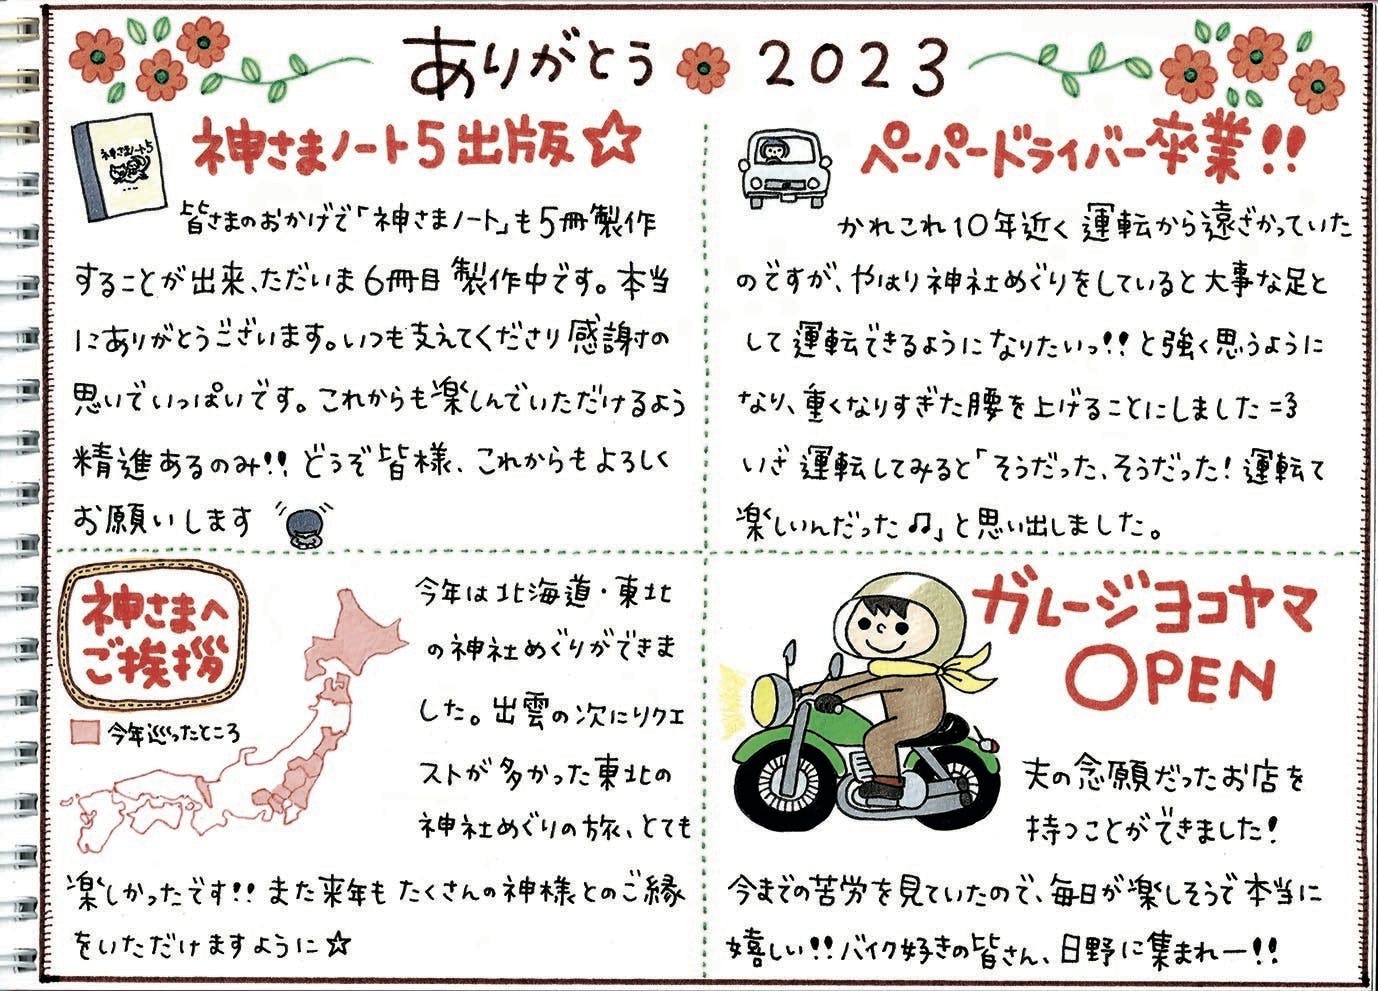 ありがとう 2023
神さまノート5
神さまノート5出版☆
皆さまのおかげで「神さまノート」も5冊製作
することが出来、ただいま6冊目製作中です。本当
にありがとうございます。いつも支えてくださり感謝の
思いでいっぱいです。これからも楽しんでいただけるよう
精進あるのみ!! どうぞ皆様、これからもよろしく
お願いします
ペーパードライバー卒業!!
かれこれ10年近く運転から遠ざかっていた
のですが、やはり神社めぐりをしていると大事な足と
して運転できるようになりたいっ!!と強く思うように
なり、重くなりすぎた腰を上げることにしました=3
いざ運転してみると「そうだった、そうだった!運転て
楽しいんだった♫」と思い出しました。
神さまへ
ご挨拶
今年巡ったところ
今年は北海道・東北
の神社めぐりができま
した。出雲の次にリクエ
ストが多かった東北の
神社めぐりの旅、とても
楽しかったです!! また来年もたくさんの神様とのご縁
をいただけますように☆
ガレージヨコヤマ
OPEN
夫の念願だったお店を
持つことができました!
今までの苦労を見ていたので、毎日が楽しそうで本当に
嬉しい!!バイク好きの皆さん、日野に集まれー!!